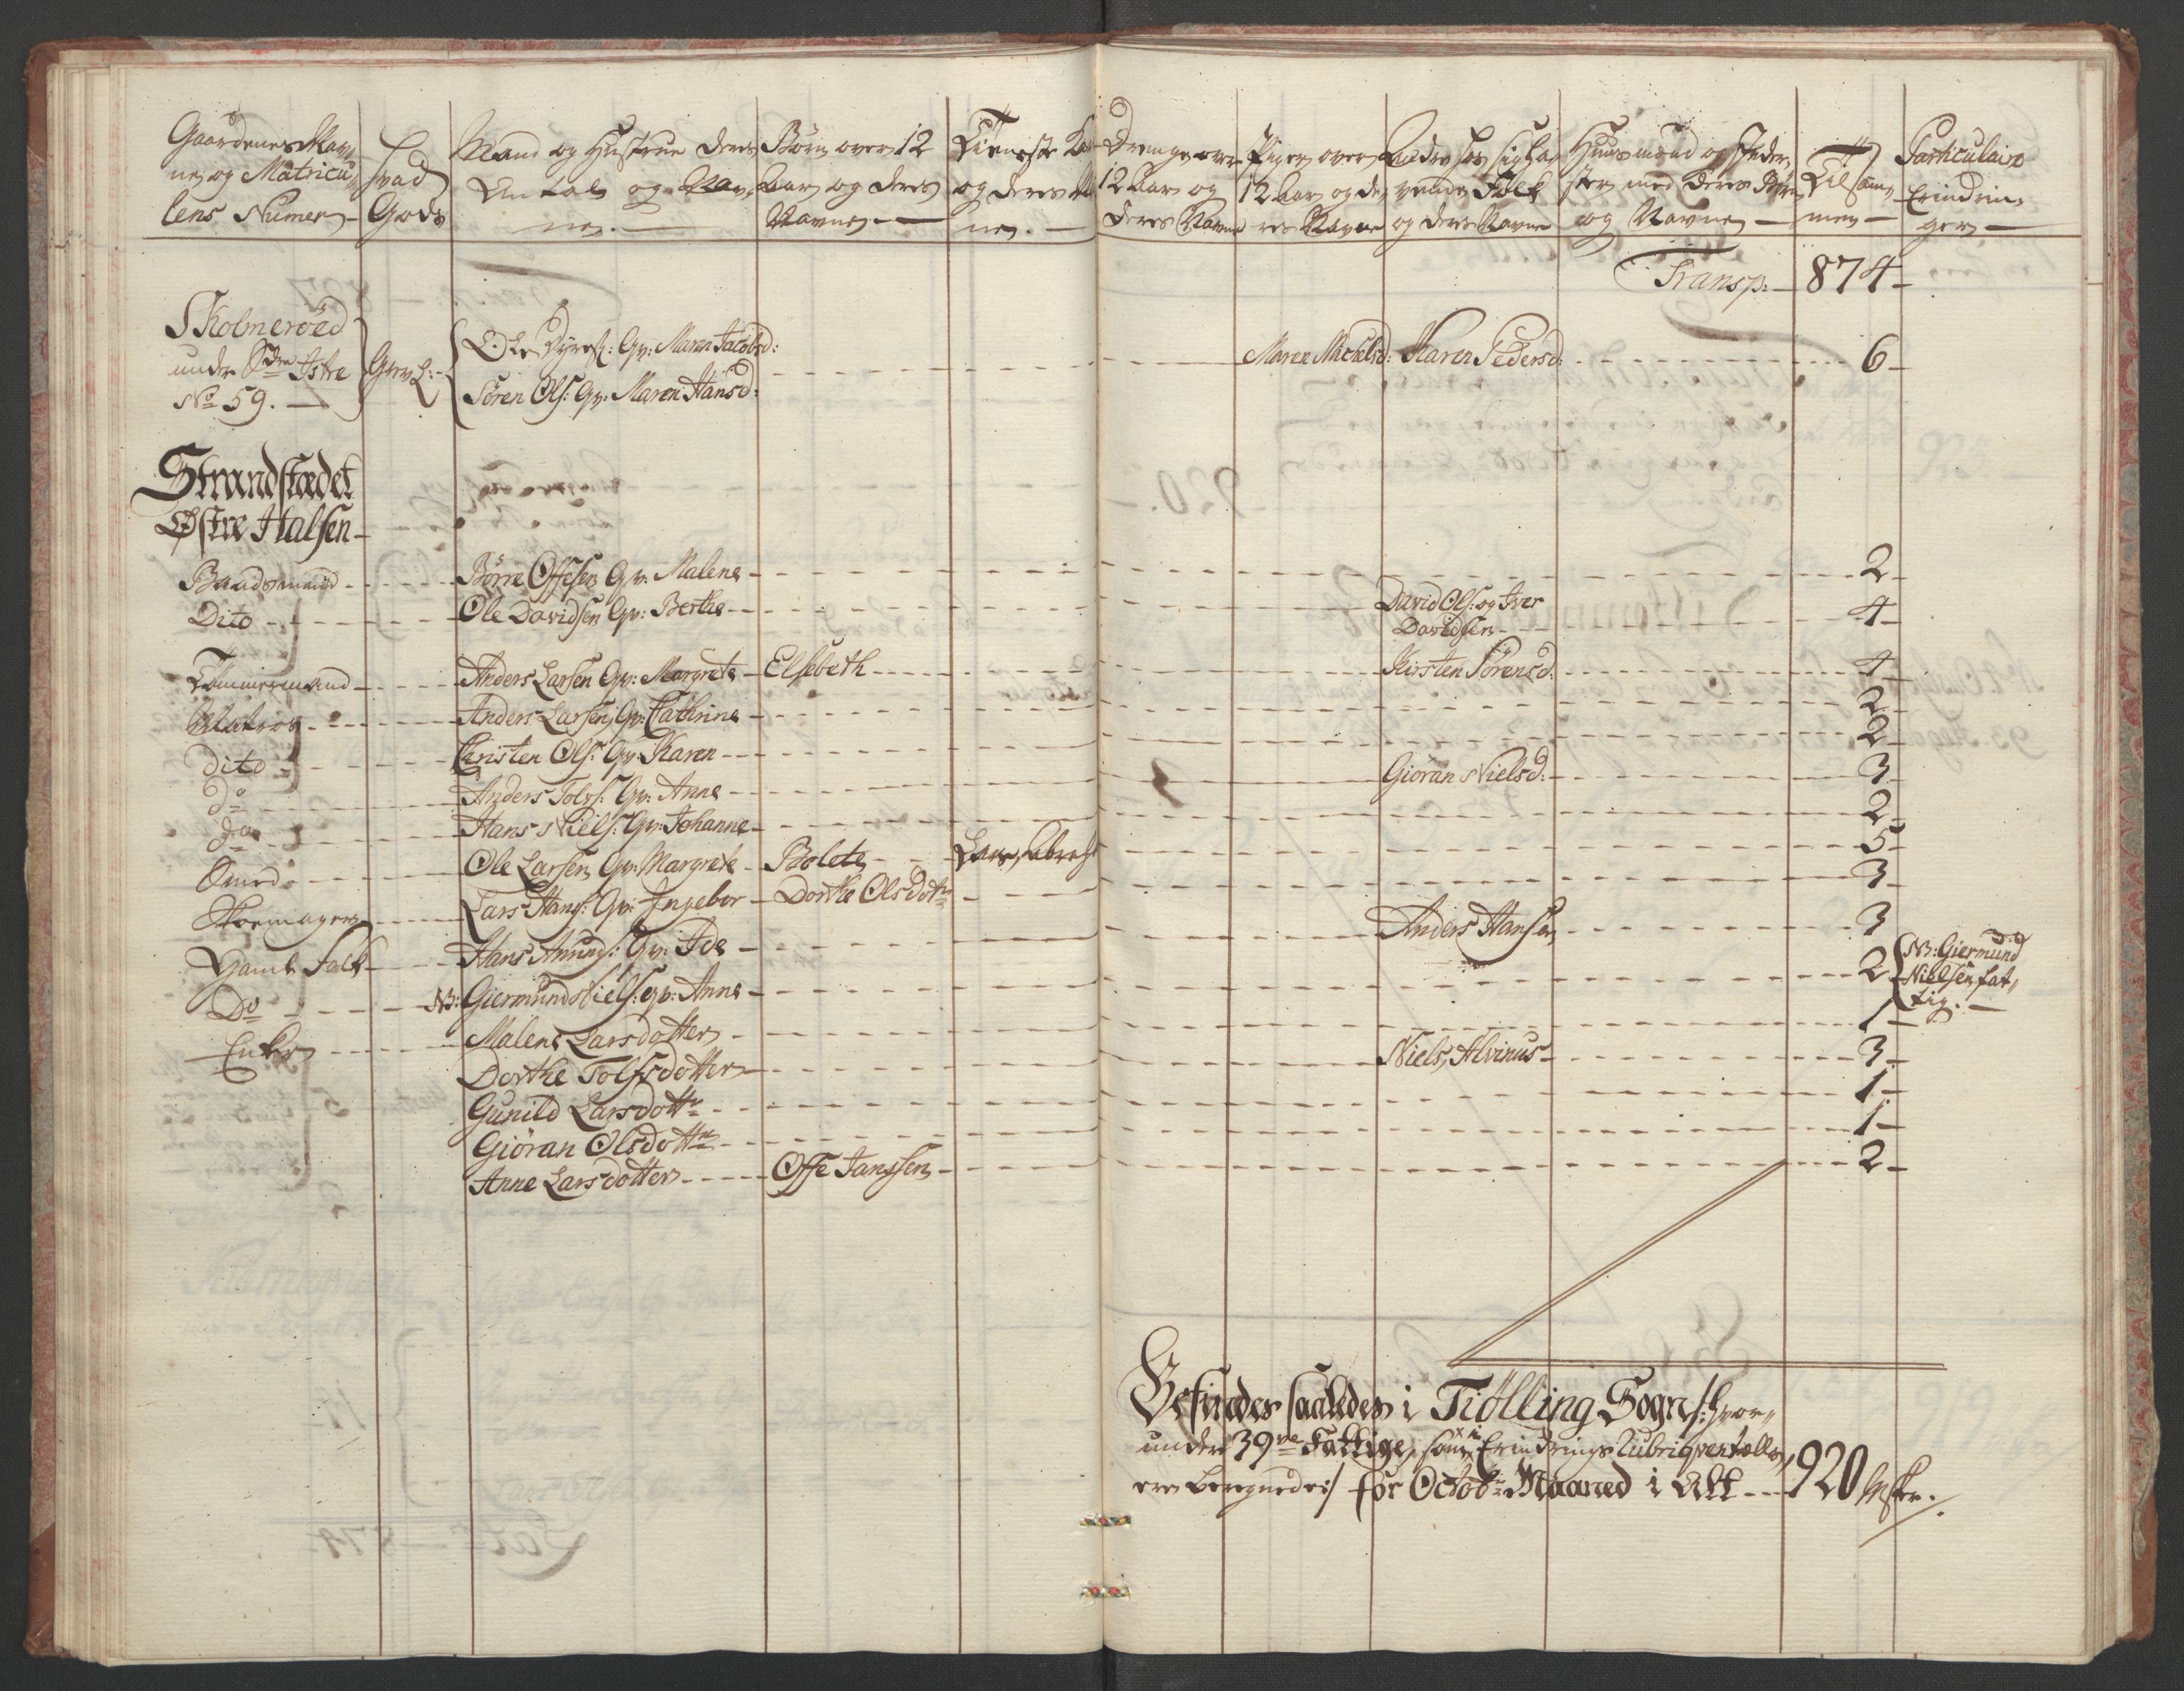 Gaardenes Nav,
ne og Matricu,
lens Numer
Hvad
Gods
Mand og Hustrue deres
Antal og Nav,
ne.
Børn over 12
Aar og deres
Navne
Tieneste
og deres
ne.
Drenge over
12 Aar og
deres Navne
Piger over
12 Aar og de,
res Navne
Andre hos sig ha,
vende Folk
og deres Navne
Huusmænd og Inder,
ster med deres Børn
og Navne
Tilsam,
men
Particulaire
Erindrin,
ger
Transp: 874
Skolmeröed
under Sdre Istre
No 59.
Grevs:
Ole Dyres: Qv: Maren Jacobsd:
Søren Ols: Qv: Maren Hansd:
Maren Michelsd: Karen Pedersd: 6
Strandstædet
Østre Halsen
Baadsmand Börre Offesen Qv: Malene 2
Dito Ole Davidsen Qv: Berthe David Ols: og Iver
Davidsen 4
Tømmermand Anders Larsen Qv: Margrete Elsebeth Kirsten Sörensd: 4
Matros Anders Larsen Qv: Cathrine 2
Dito Christen Ols: Qv: Karen 2
do Anders Tolvs: Qv: Anne Giöran Nielsd: 3
do Hans Niels: Qv: Johanne 2
Smed Ole Larsen Qv: Margrete Bolete Lars, 5
Skoemager Lars Hans: Qv: Ingebor Dorthe Olsdottr 3
Gamle Folk Hans Amunds: Qv: Ide Anders Hansen 3
Do NB: Giermund Niels: qv: Anne 2 NB: Giermund
Nielsen fat,
tig.
Enker Malene Larsdotter 1
Dorthe Tolfsdotter Niels, Alvinus 3
Gunild Larsdottr 1
Giöran Olsdottr 1
Anne Larsdotter Offe Janssen 2
Befindes saaledes i Tiölling Sogn /: hvor,
under 39ve Fattige, som i Erindrings Rubriqven
ere beregnede :/ for Octobr Maaned i Alt 920 Msker.